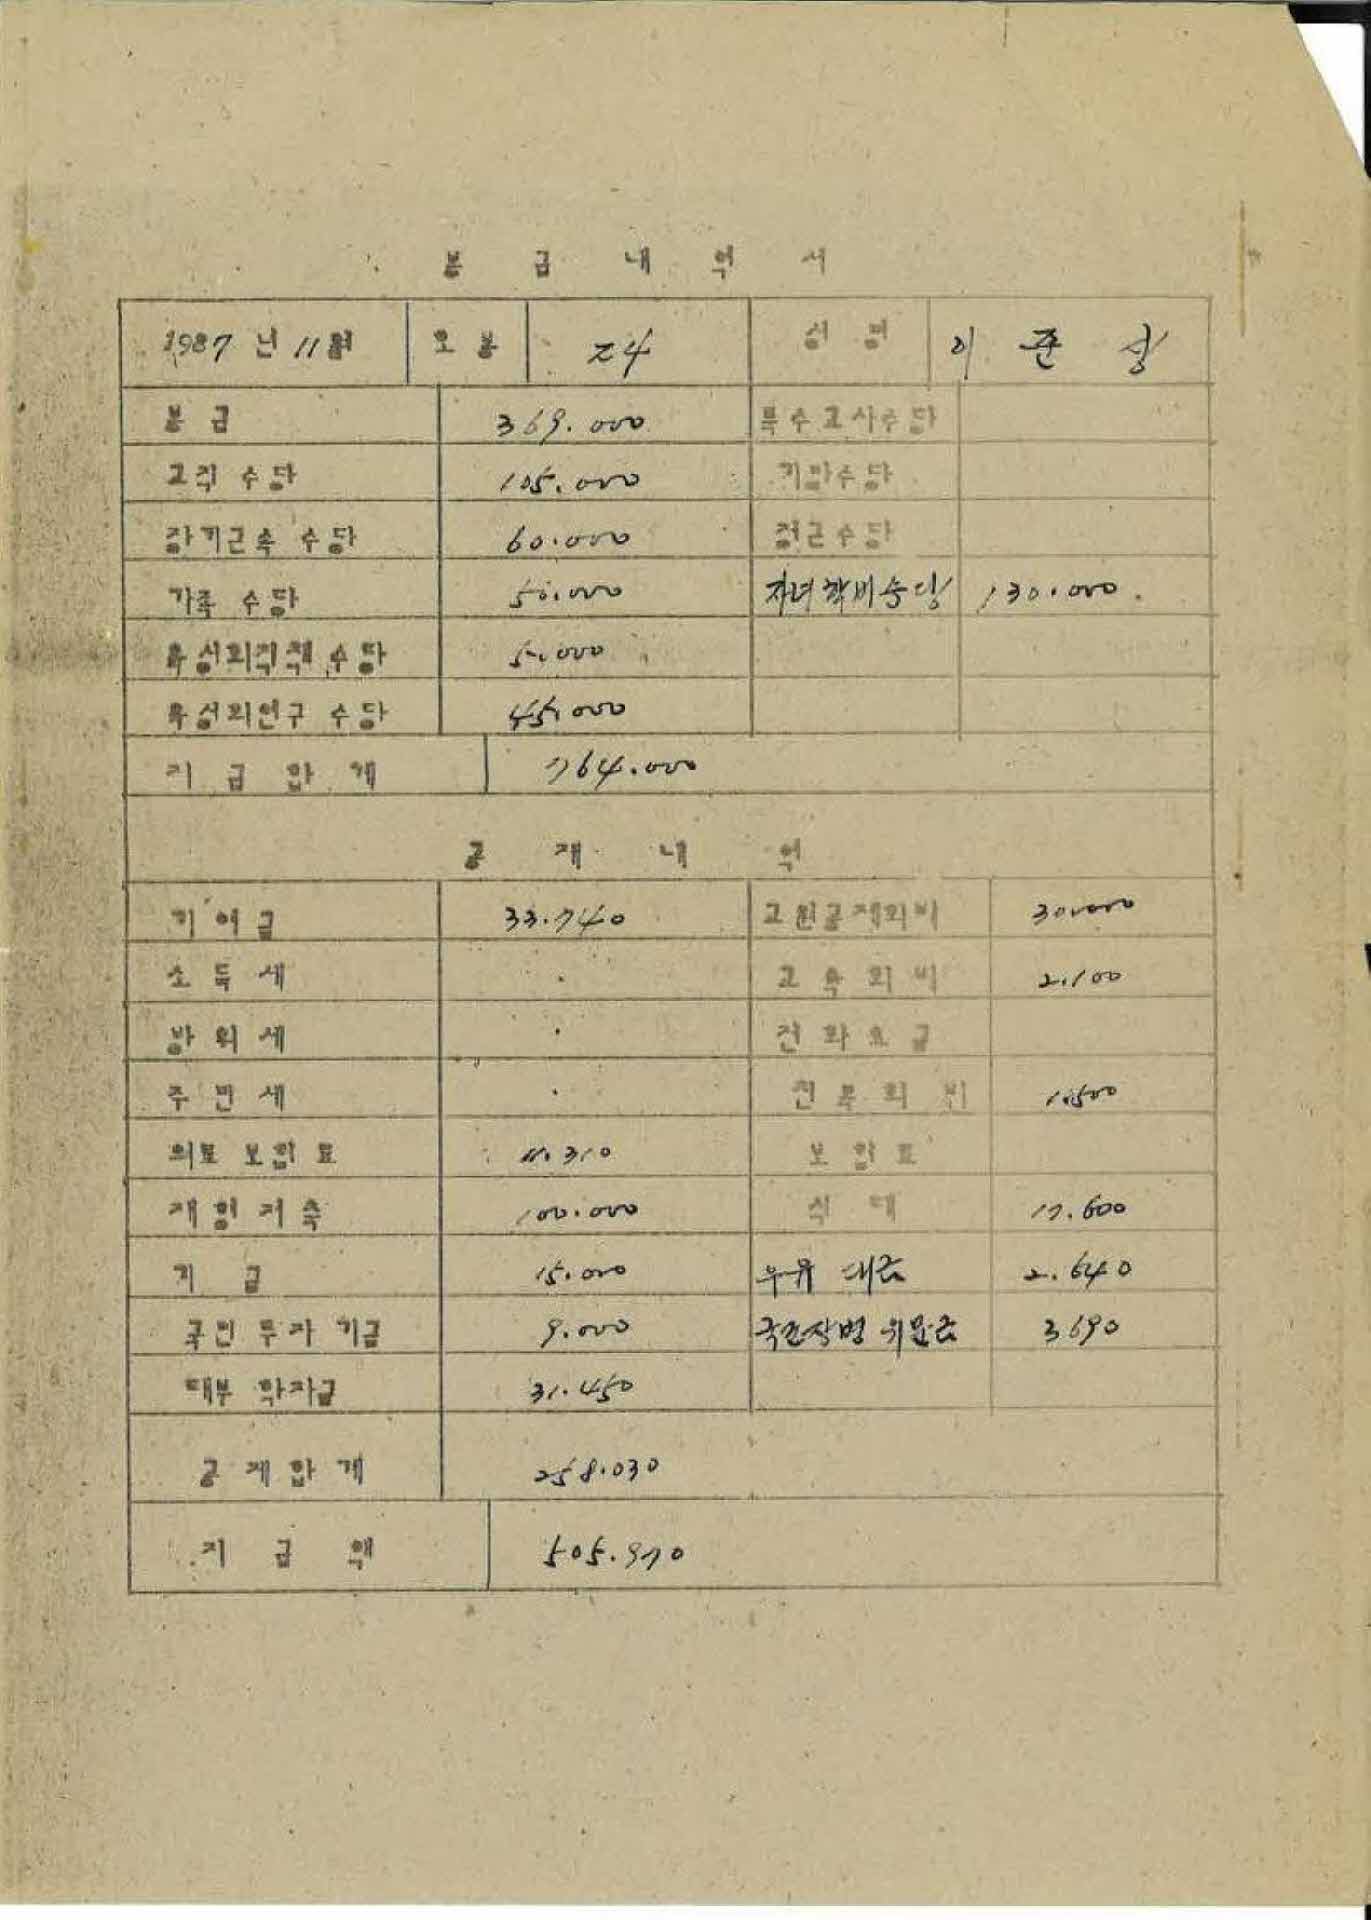 봉 급 내 역 서
1987 년 11월 호 봉 24 성 명 이 준 상
봉 급 369.000 특수교사수당
교직 수당 105.000 기말수당
장기근속 수당 60.000 정근수당
가족 수당 50.000 자녀학비수당 130.000.
육성회직책 수당 5.000
육성회연구 수당 45.000
지 급 합 계 764.000
공 제 내 역
기 여 금 33.740 교원공제회비 30.000
소 득 세 교 육 회 비 2.100
방 위 세 전 화 요 금
주 민 세 친 목 회 비 1.500
의료 보험 료 11.310 보 험 료
재형저축 100.000 식 대 17.600
기 금 15.000 우유 대금 2.640
국민 투자 기금 9.000 국군장병 위문금 3690
대부 학자금 31.450
공 제 합 계 258.030
지 급 액 505.970